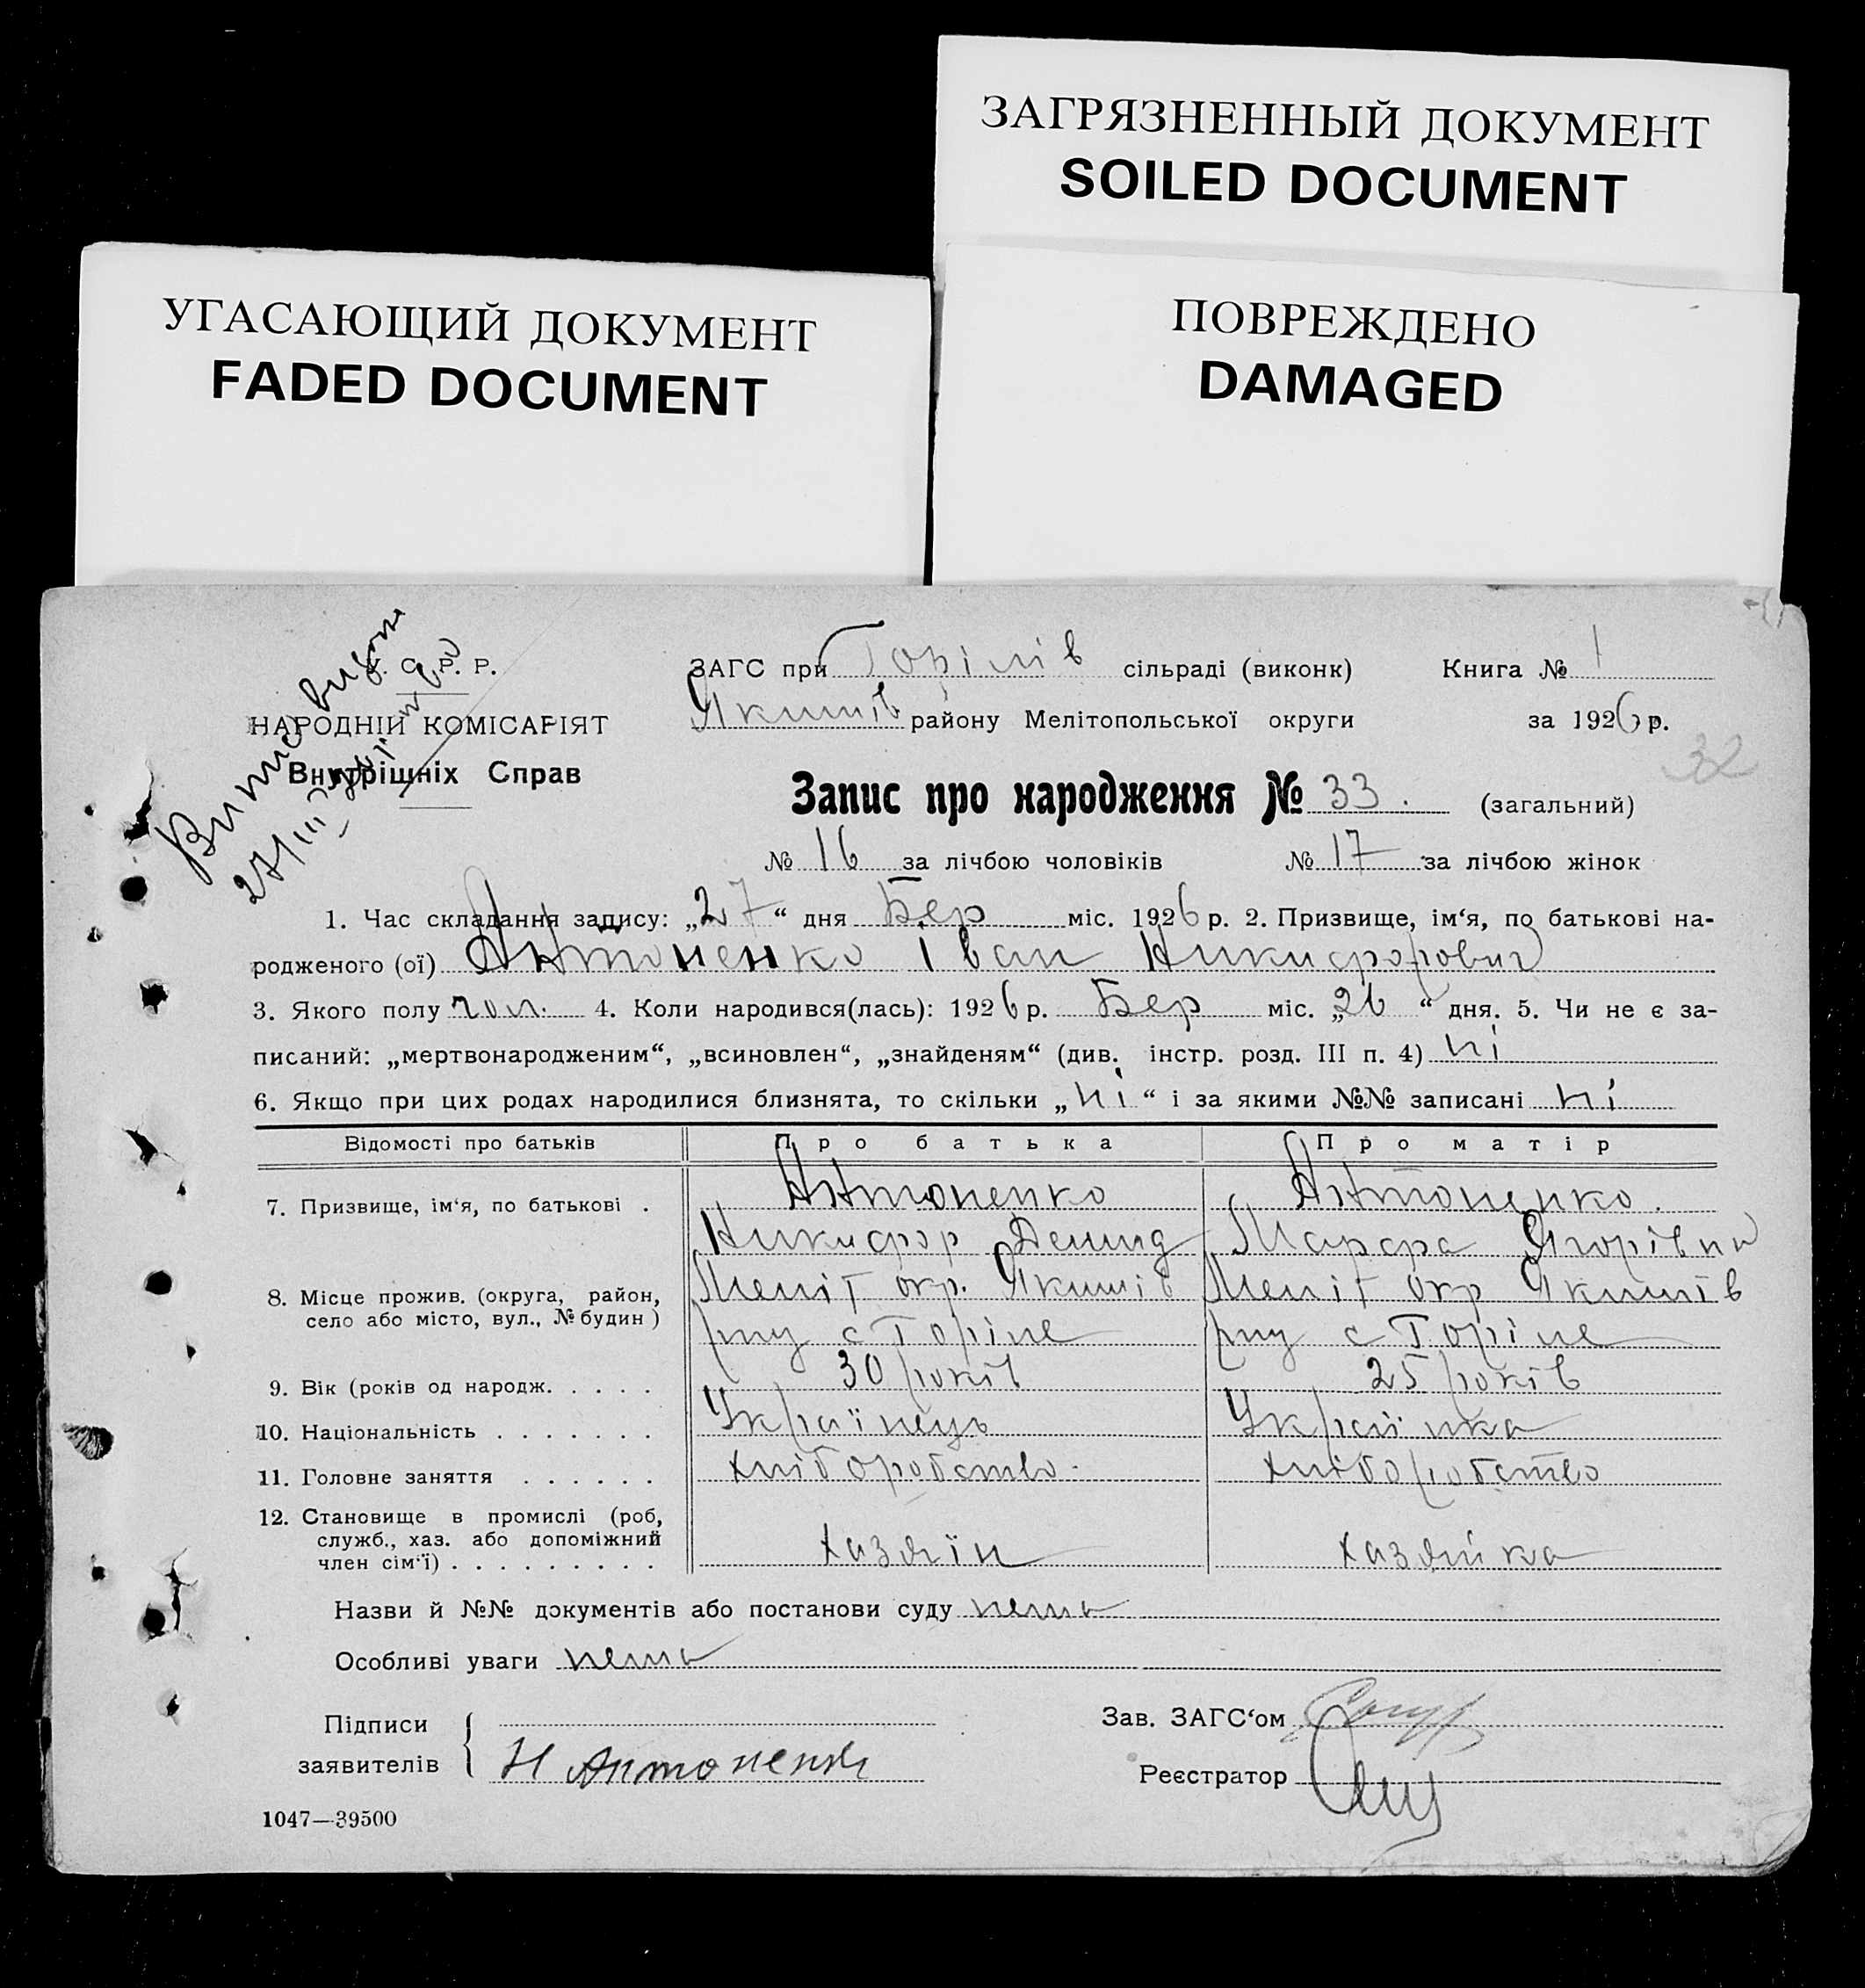 ЗАГРЯЗНЕННЫЙ ДОКУМЕНТ
SOILED DOCUMENT
УГАСАЮЩИЙ ДОКУМЕНТ
FADED DOCUMENT
ПОВРЕЖДЕНО
DAMAGED
У. С. Р. Р.
НАРОДНІЙ КОМІСАРІЯТ
Внутрішніх Справ
27/III
ЗАГС при Горілів сільраді (виконк) Книга № 1
Якимів району Мелітопольської округи за 1926 р.
32
Запис про народження № 33. (загальний)
№ 16 за лічбою чоловіків № 17 за лічбою жінок
1. Час складання запису: „27“ дня Бер міс. 1926 р. 2. Призвище, ім‘я, по батькові на-
родженого (ої) Антоненко Іван Никифорович
3. Якого полу чол. 4. Коли народився(лась): 1926 р. Бер міс. „26“ дня. 5. Чи не є за-
писаний: „мертвонародженим“, „всиновлен“, „знайденям“ (див. інстр. розд. III п. 4) ні
6. Якщо при цих родах народилися близнята, то скільки „ні“ і за якими №№ записані ні
Відомості про батьків Про батька Про матір
7. Призвище, ім‘я, по батькові . Антоненко Антоненко.
Никифор Демид Марфа Ягорівна
8. Місце прожив. (округа, район, село або місто, вул., № будин) Меліт окр. Якимів Меліт окр Якимів
рну с Горіле рну с Горіле
9. Вік (років од народж. . . . . 30 років 25 років
10. Національність . . . . . . . Українець Українка
11. Головне заняття . . . . . . хліборобство. хліборобство
12. Становище в промислі (роб,
служб., хаз. або допоміжний
член сім‘ї) . . . . . . . . . хазяїн хазяйка
Назви й №№ документів або постанови суду нема
Особливі уваги нема
Підписи
заявителів Н Антоненко
Зав. ЗАГС‘ом
Реєстратор
1047—39500